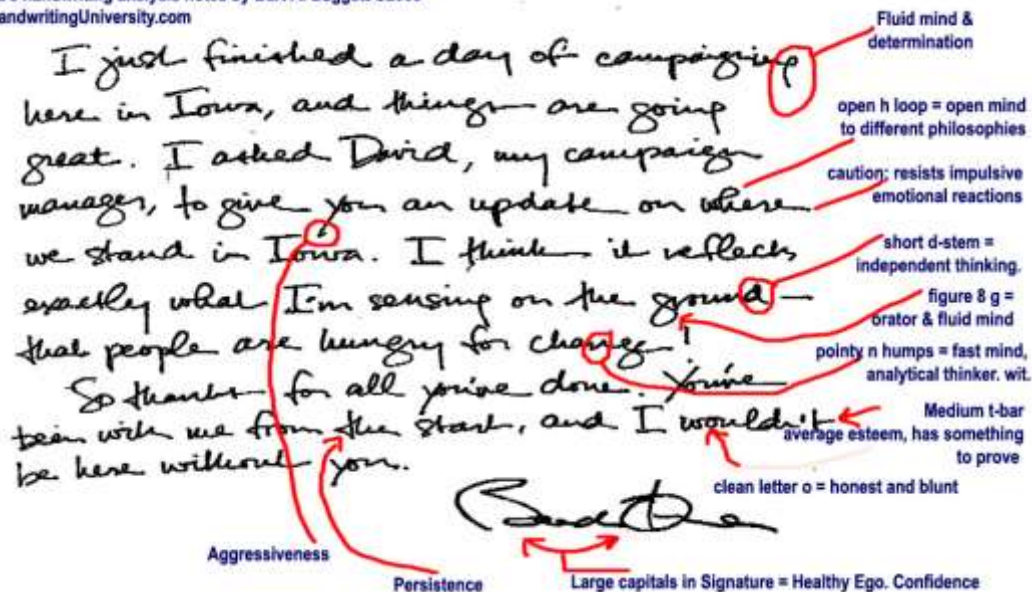 andwritingUniversity.com
I just finished a day of campaigning
here in Iowa, and things are going
great. I asked David, my campaign
manager, to give you an update on where
we stand in Iowa. I think it reflects
exactly what I'm sensing on the ground —
that people are hungry for change!
So thanks for all you've done. You've
been with me from the start, and I wouldn't
be here without you.
Fluid mind &
determination
open h loop = open mind
to different philosophies
caution; resists impulsive
emotional reactions
short d-stem =
independent thinking.
figure 8 g =
orator & fluid mind
pointy n humps = fast mind,
analytical thinker. wit.
Medium t-bar
average esteem, has something
to prove
clean letter o = honest and blunt
Aggressiveness
Persistence
Large capitals in Signature = Healthy Ego. Confidence